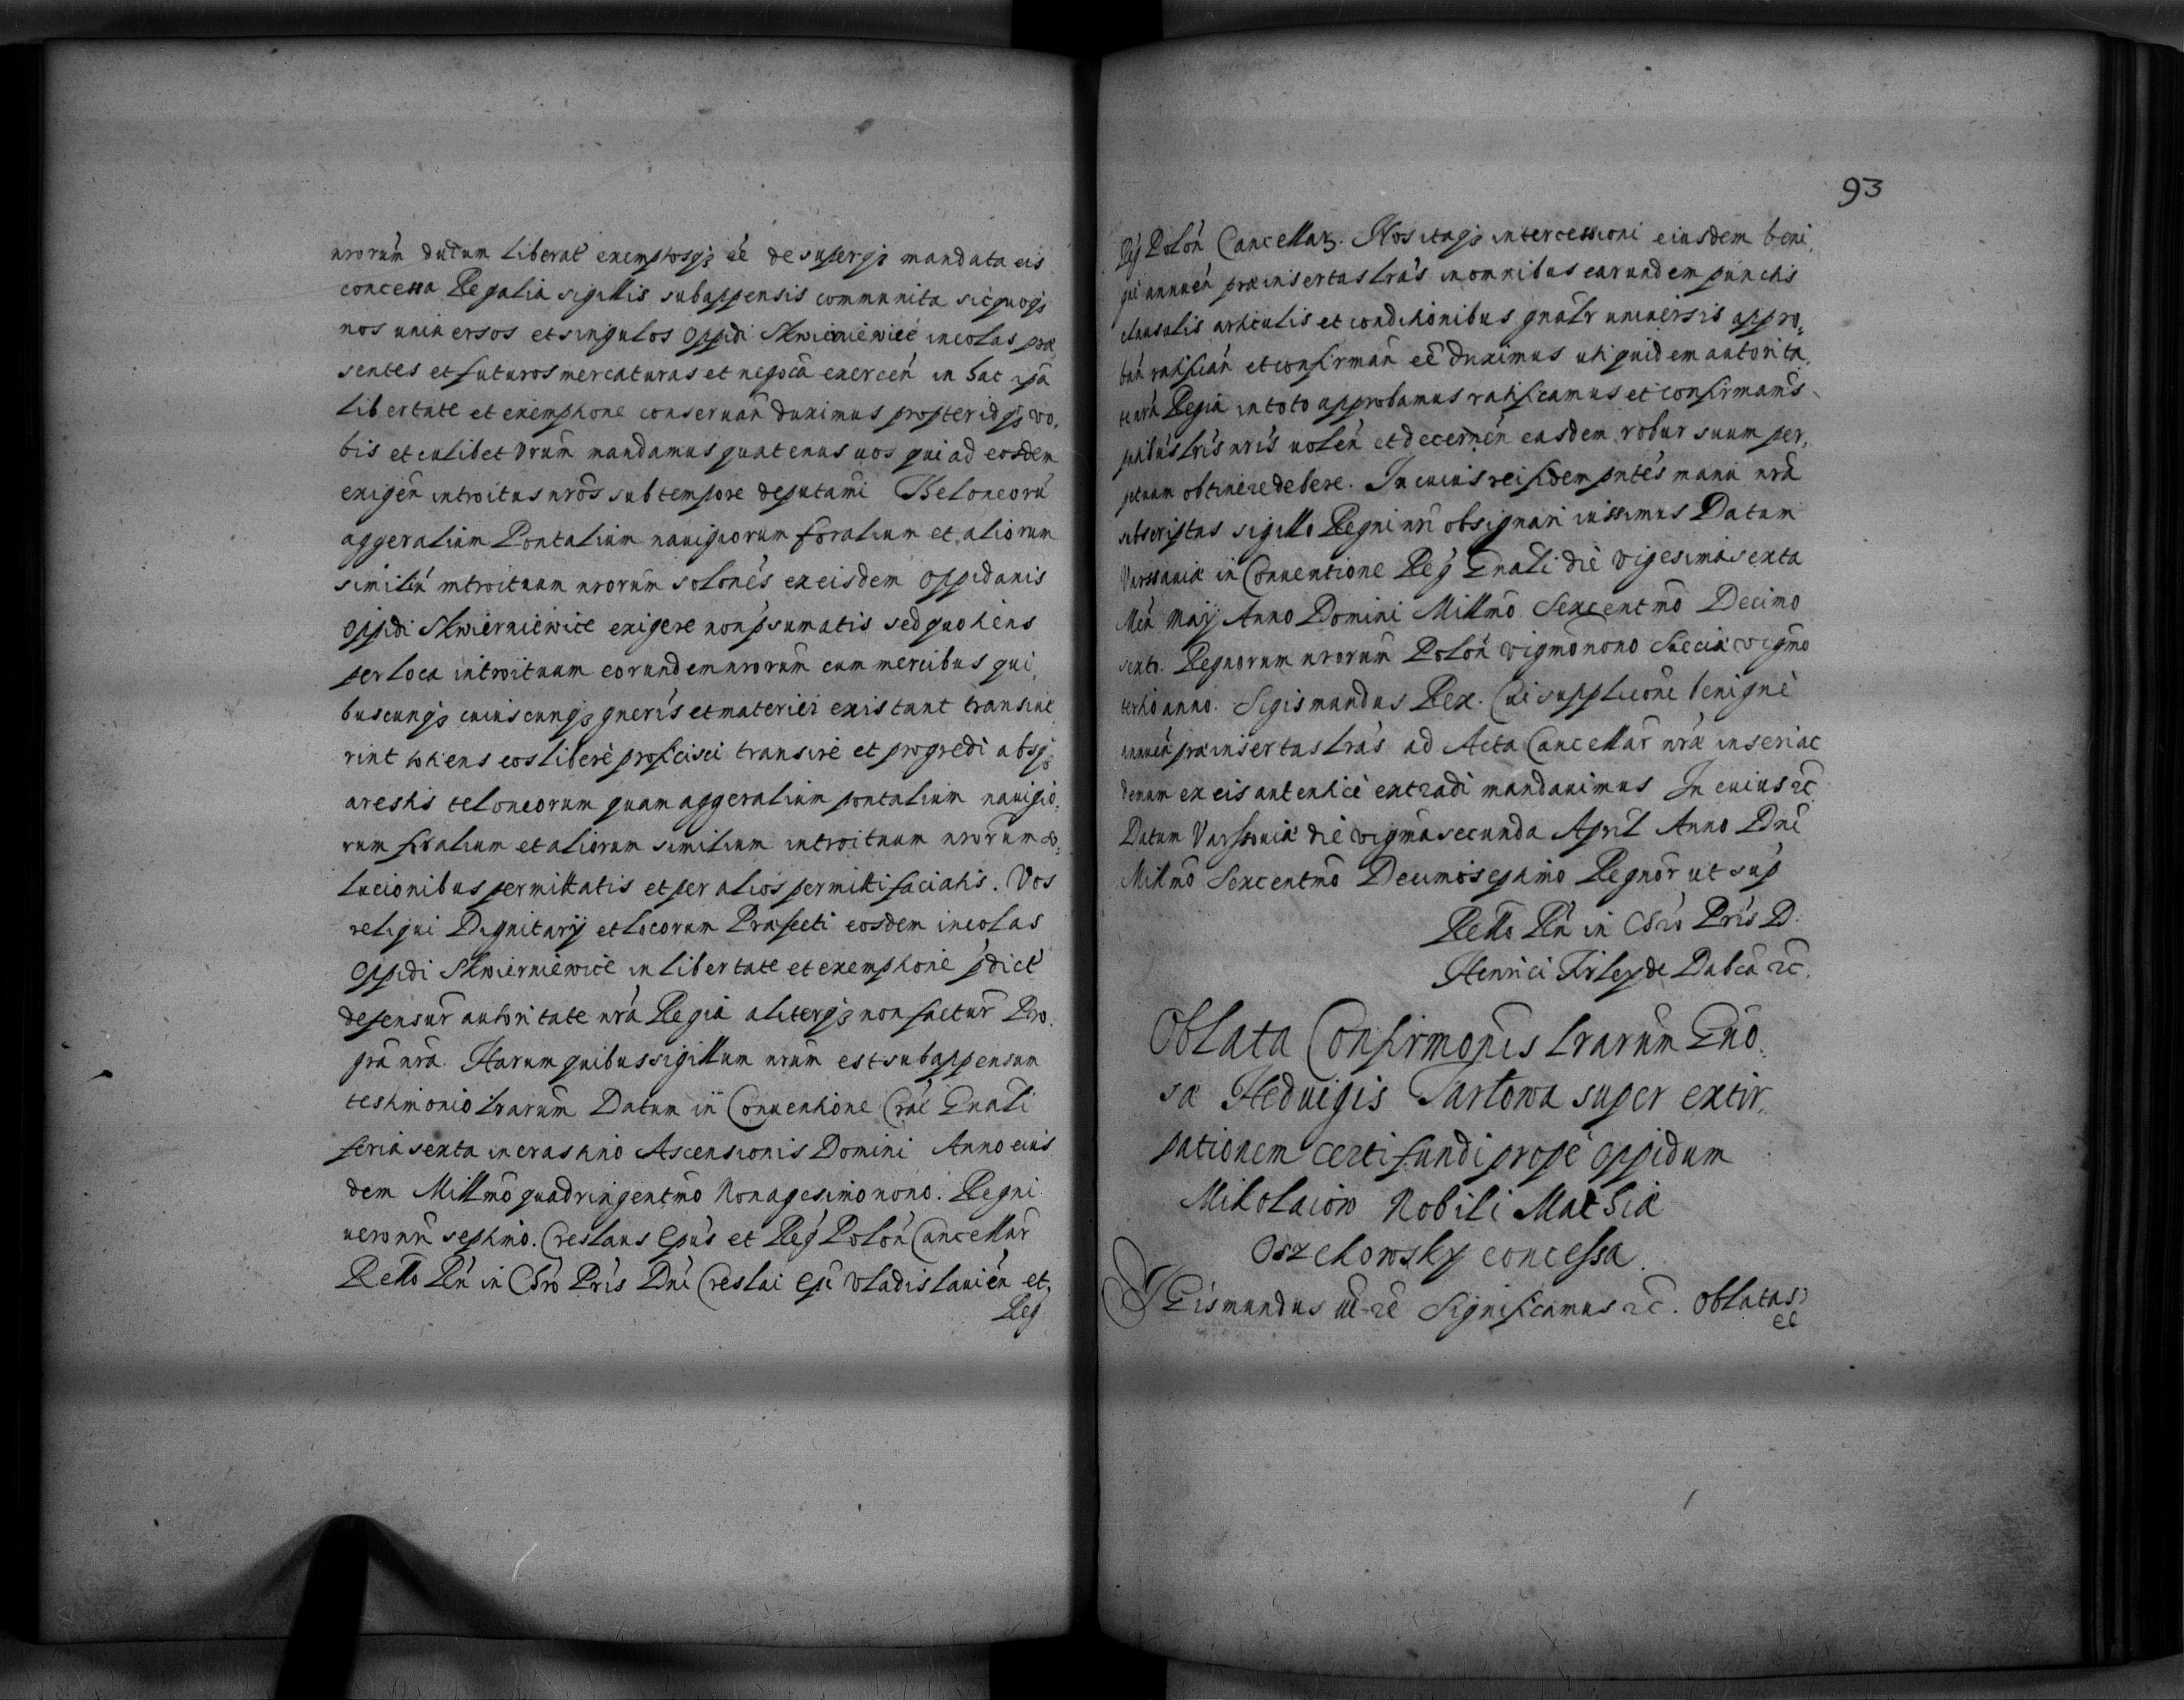 nrorum ducum liberat exemptosq₃ ee desuperq₃ mandata eis
concessa Regalia sigillis subappensis communita sicquoq₃
nos universos et singulos Oppidi Skwierniewice incolas prae
sentes et futuros mercaturas et negocia exercen in hac ipsa
libertate et exemptione conseruan duximus propteridq₃ vo,
bis et cuilibet vrum mandamus quatenus uos qui ad eosdem
exigen introitus nros sub tempore deputami Theloneoru
aggeralium Pontalium nauigiorum foralium et aliorum
similiu introituum nrorum solones ex eisdem oppidanis
Oppidi Skwierniewice exigere non psumatis sed quotiens
per loca introituum eorundem nrorum cum mercibus qui,
buscunq₃ cuiuscunq₃ gneris et materiei existant transiue
rint totiens eos libere proficisci transire et progredi absq₃
arestis teloneorum quam aggeralium pontalium nauigio,
rum foralium et aliorum similium introituum nrorum so,
lucionibus permittatis et per alios permitti faciatis. Vos
reliqui Dignitarij et locorum Praefecti eosdem incolas
Oppidi Skwierniewice in libertate et exemptione pdict
defensur autoritate nra Regia aliterq₃ non factur Pro.
gra nra. Harum quibus sigillum nrum est subappensum
testimonio lrarum Datum in Conuentione Crac Gnali
feria sexta in crastino Ascensionis Domini Anno eius
dem Millmo quadringentmo Nonagesimo nono. Regni
uero nri septimo. Creslaus Epus et Reg Polon Cancellar
Retto Rn in Chro Pris Dni Creslai Epi Vladislauien et.
Reg
93
Rej Polon Cancellar₃. Nos itaq₃ intercessioni eiusdem beni,
gne annuen praeinsertas lras in omnibus earundem punctis
clausulis articulis et conditionibus gnalr uniuersis appro,
ban ratifican et confirman ee duximus uti quidem autorita,
te nra Regia in toto approbamus ratificamus et confirmams
pntibus lris nris uolen et decernen easdem robur suum per,
petuum obtinere debere. In cuius rei fidem pntes manu nra
subscriptas sigillo Regni nri obsignari iussimus Datum
Varssauiae in Conuentione Reg Gnali die vigesima sexta
Men Maij Anno Domini Millmo Sexcentmo Decimo
sexto. Regnorum nrorum Polon vigmo nono Sueciae vigmo
tertio anno. Sigismundus Rex. Cui supplicone benigne
annuen praeinsertas lras ad Acta Cancellar nrae inseri ac
demum ex eis autentice extradi mandauimus In cuius rc
Datum Varssouiae die vigma secunda April Anno Dni
Millmo Sexcentmo Decimo septimo Regnor ut sup
Retto Rn in Chro Pris D.
Henrici Firley de Dabca rc.
Oblata Confirmonis lrarum Gno,
sae Heduigis Tarłowa super extir,
pationem certi fundi prope oppidum
Mikolaiow Nobili Mathiae
Oszchowsky concessa.
SIGismundus rc Significamus rc. Oblatas
ee